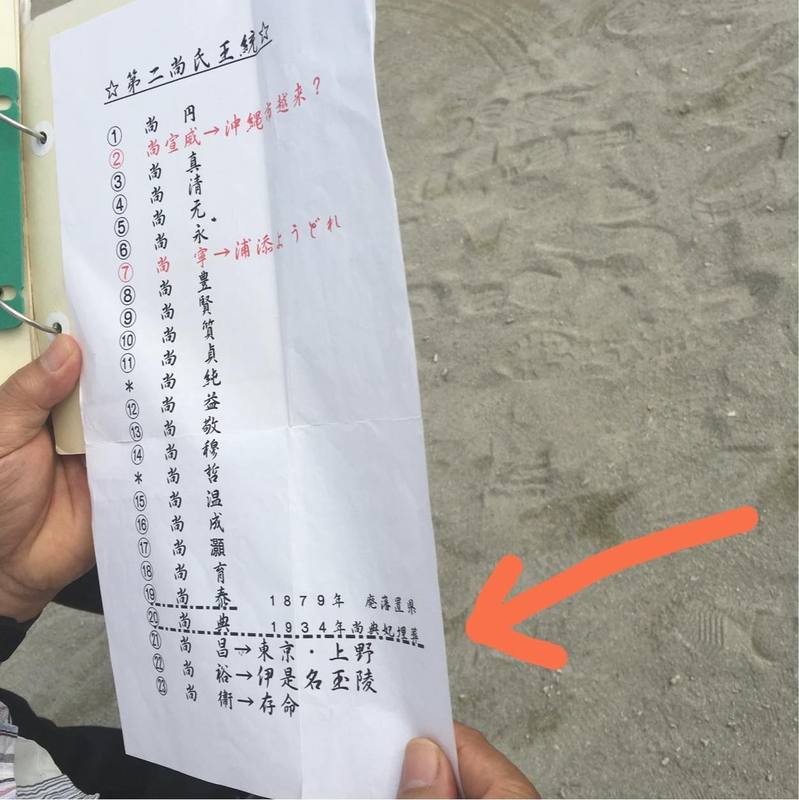 ☆第二尚氏王統☆
① 尚 円
② 尚宣威→沖縄市越来？
③ 尚 真
④ 尚 清
⑤ 尚 元
⑥ 尚 永
⑦ 尚 寧→浦添ようどれ
⑧ 尚 豊
⑨ 尚 賢
⑩ 尚 質
⑪ 尚 貞
* 尚 純
⑫ 尚 益
⑬ 尚 敬
⑭ 尚 穆
* 尚 哲
⑮ 尚 温
⑯ 尚 成
⑰ 尚 灝
⑱ 尚 育
⑲ 尚 泰 1879年 廃藩置県
⑳ 尚 典 1934年尚典妃埋葬
㉑ 尚 昌→東京・上野
㉒ 尚 裕→伊是名玉陵
㉓ 尚 衛→存命